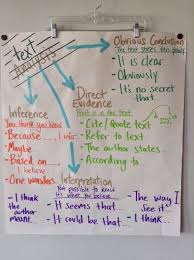 text
Analysis
Obvious Conclusion
The text states this
• It is clear
• Obviously
• It's no secret
that.
Direct
Evidence
that is in the text
• Cite/Quote text
• Refer to text
• The author states
• According to
Inference
You think you know
• Because..... I infer
• Maybe
• Based on
I believe
• One wonders
Interpretation
Not possible to know
It's what you believe
• I think
the author
meant..
• It seems that
• It could be that..
• The way I
see it?
• I think..